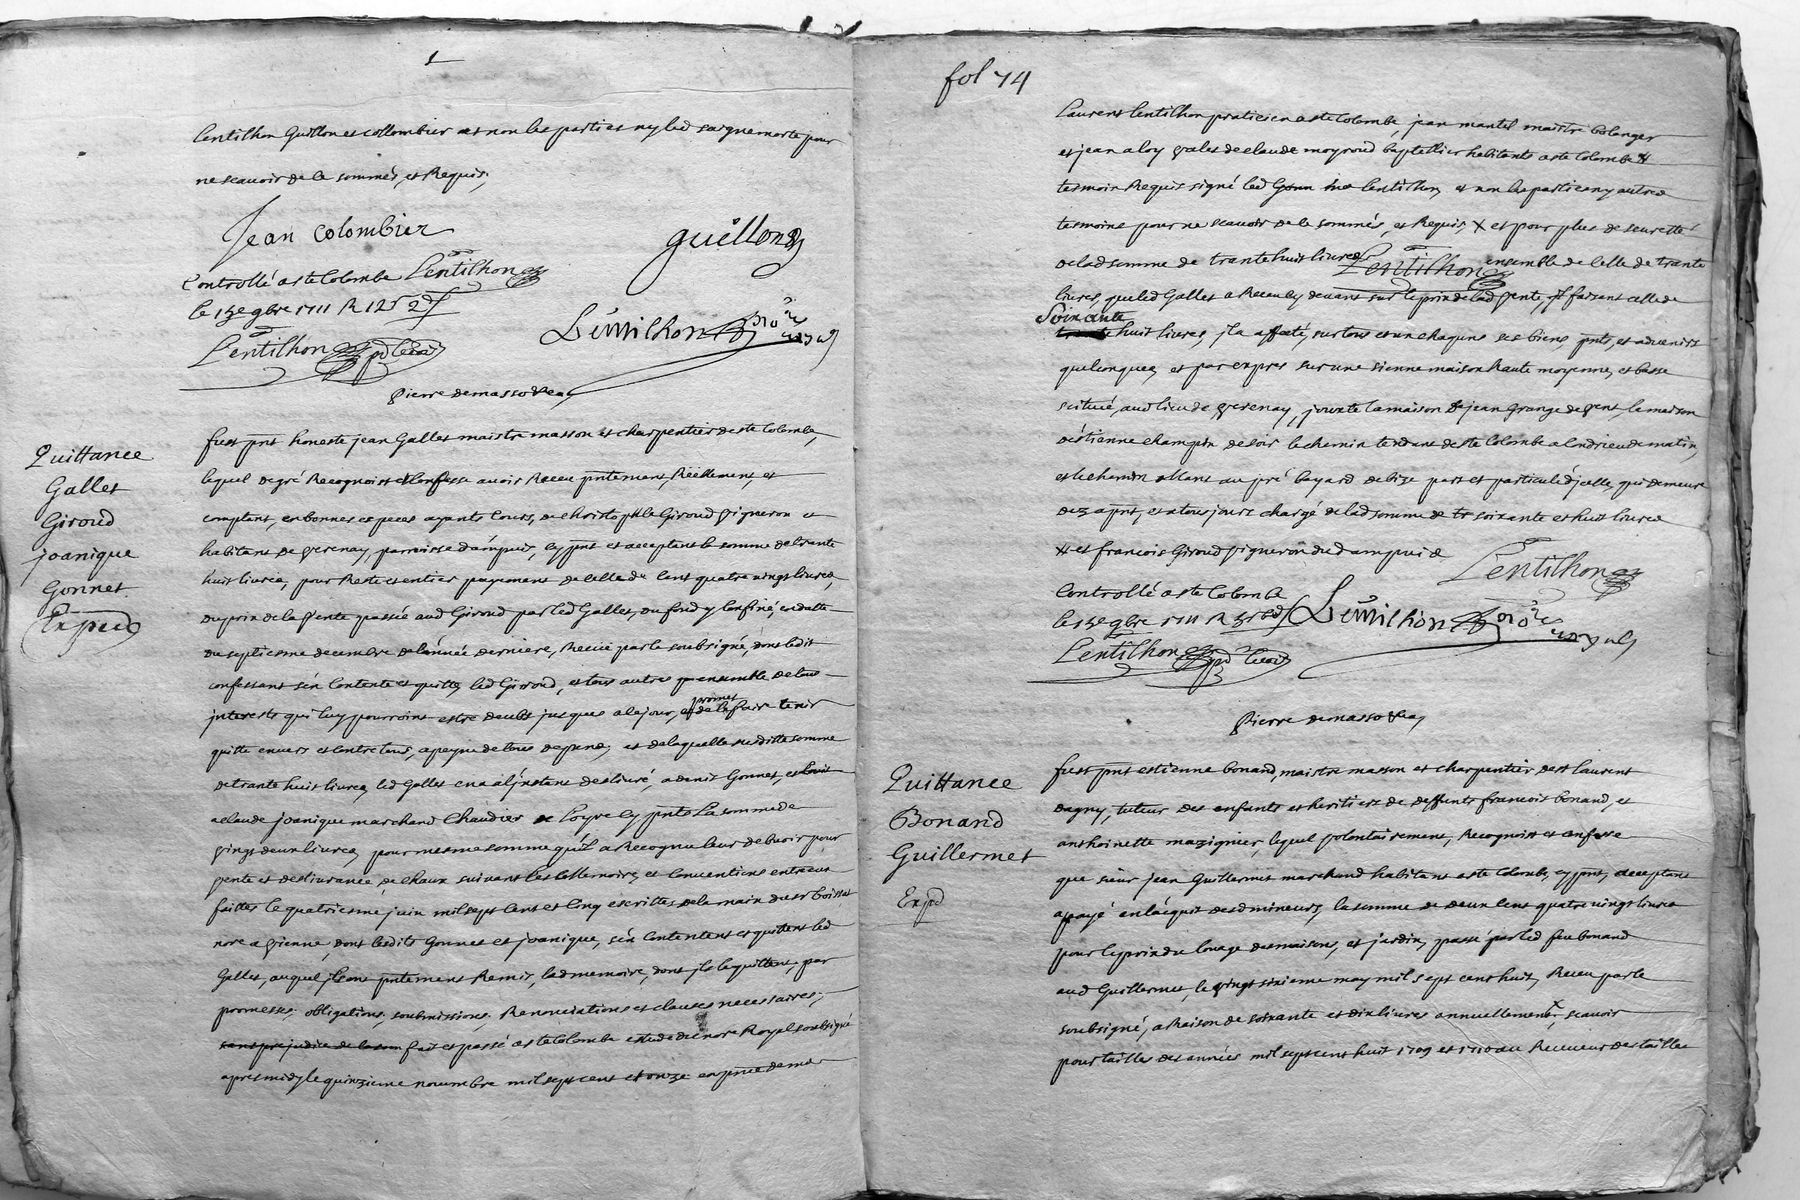 Lentilhon Guillon et collombier et non les parties ny led saignemorte pour
ne scavoir de ce sommés, et Requis,
Jean colombier
guillon
Controllé a ste Colombe Lentilhon
le 15e 9bre 1711 R 12s 2d
Lentilhon
Lentilhon
pierre demasso
Quittance
Gallet
Giroud
joanique
Gonnet
Exped
fust pnt honeste jean Gallet maistre masson et charpentier de ste Colombe,
lequel de gré Recognoist et Confesse avoir Receu pntement, Reellement et
comptant, en bonnes especes ayants Cours, de christophle Giroud vigneron et
habitant de verenay, parroisse d'ampuis, cy pnt et acceptant la somme de trante
huit livres, pour Reste et entier payement de celle de Cent quatre vingt livres,
du prix de la vente passée aud Giroud par led Gallet, du fond y Confiné, en datte
du septiesme decembre de l'année derniere, Receue par le soubsigné, dont ledit
confessant s'en Contente et quitte led Giroud, et tous autres qu ensemble de tous
promet
interests qui luy pourroint estre deubt jusques a ce jour, et de le faire tenir
quitte envers et Contre tous, a peyne de tous depans, et de laquelle susditte somme
de trante huit livres, led Gallet en a a l'jnstant deslivré, a denis Gonnet, et
a claude joanique marchand Chaudier de Loyre cy pnts La somme de
vingt deux livres, pour mesme somme qu'il a Recognu leur debvoir pour
vente et deslivrance de chaux suivant les Memoires, et Conventions entreux
faittes le quatriesme juin mil sept Cent et Cinq escrittes de la main du sr boissat
nore a vienne, dont lesdits Gonnet et joanique, s'en Contentent et quittent led
Gallet, auquel jls ont pntement Remis, lad memoire, dont jls le quittent, par
promesses, obligations, soubmissions, Renonciations et clauses necessaires,
sans prejudice de la som fait et passé a ste Colombe estude du nore Royal soubsigné
apres midy le quinzieme novembre mil sept cent et onze en pnce de me
fol 74
Laurent Lentilhon praticien a ste Colombe, jean mantel maistre bolanger
et jean aloy valet de claude moyroud baptellier habitants a ste Colombe #
tesmoin Requis signé led Lentilhon, et non les parties ny autres
tesmoins pour ne scavoir de ce sommés, et Requis, X et pour plus de seurette
de lad somme de trante huit livres Lentilhon ensemble de Celle de trante
livres, que led Gallet a Receu cy devant sur le prix de lad vente, et faisant celle de
Soixante
huit livres, jl a affecté, sur tous et un chaquns ses biens, pnts, et advenirs
quelconques, et par expres sur une sienne maison haute moyenne, et basse
scituée, aud lieu de verenay, jouxte la maison de jean Grange de vent, la maison
d'estienne champin de soir le chemin tendant de ste Colombe a Condrieu de matin,
et le chemin allant au pré bayard de bize part et particule d'jcelle, qui demeure
dez a pnt, et a tous jours chargé de lad somme de soixante et huit livres
# et francois Giroud vigneron dud ampuis
Lentilhon
Controllé a ste Colombe
le 15e 9bre 1711 R
Lentilhon
Lentilhon
pierre demasso
Quittance
Bonand
Guillermet
Exped
fust pnt estienne bonand, maistre masson et charpentier de st Laurent
dagny, tuteur des enfants et heritiers de deffunts francois bonand, et
anthoinette mazignier, lequel volontairement, Recognoist et confesse
que sieur jean Guillermet marchand habitant a ste Colombe, cy pnt, acceptant
a payé en l'acquit desd mineurs, la somme de deux cent quatre vingt livres
pour le prix du louage des maisons, et jardin, passé par led feu bonand
aud Guillermet, le vingt sixieme may mil sept cent huit, Receu par le
soubsigné, a Raison de soixante et dix livres annuellement, scavoir
pour tailles des années mil sept cent huit 1709 et 1710 au Receveur des tailles